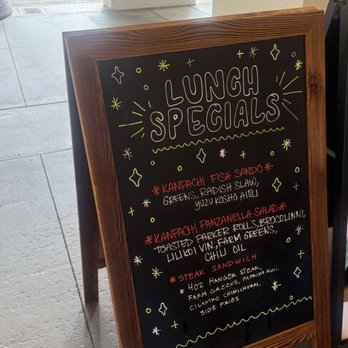 LUNCH
SPECIALS
* KANPACHI FISH SANDO
GREENS, RADISH SLAW,
YUZU KOSHO AIOLI
* KANPACHI PANZANELLA SALAD *
TOASTED PARKER ROLLS, BROCOLINNI,
LILIKOI VIN, FARM GREENS,
CHILI OIL
* STEAK SANDWICH
* 4OZ HANGER STEAK,
FARM GREENS, PAPRIKA AIOLI,
CILANTRO CHIMICHURRI,
SIDE FRIES